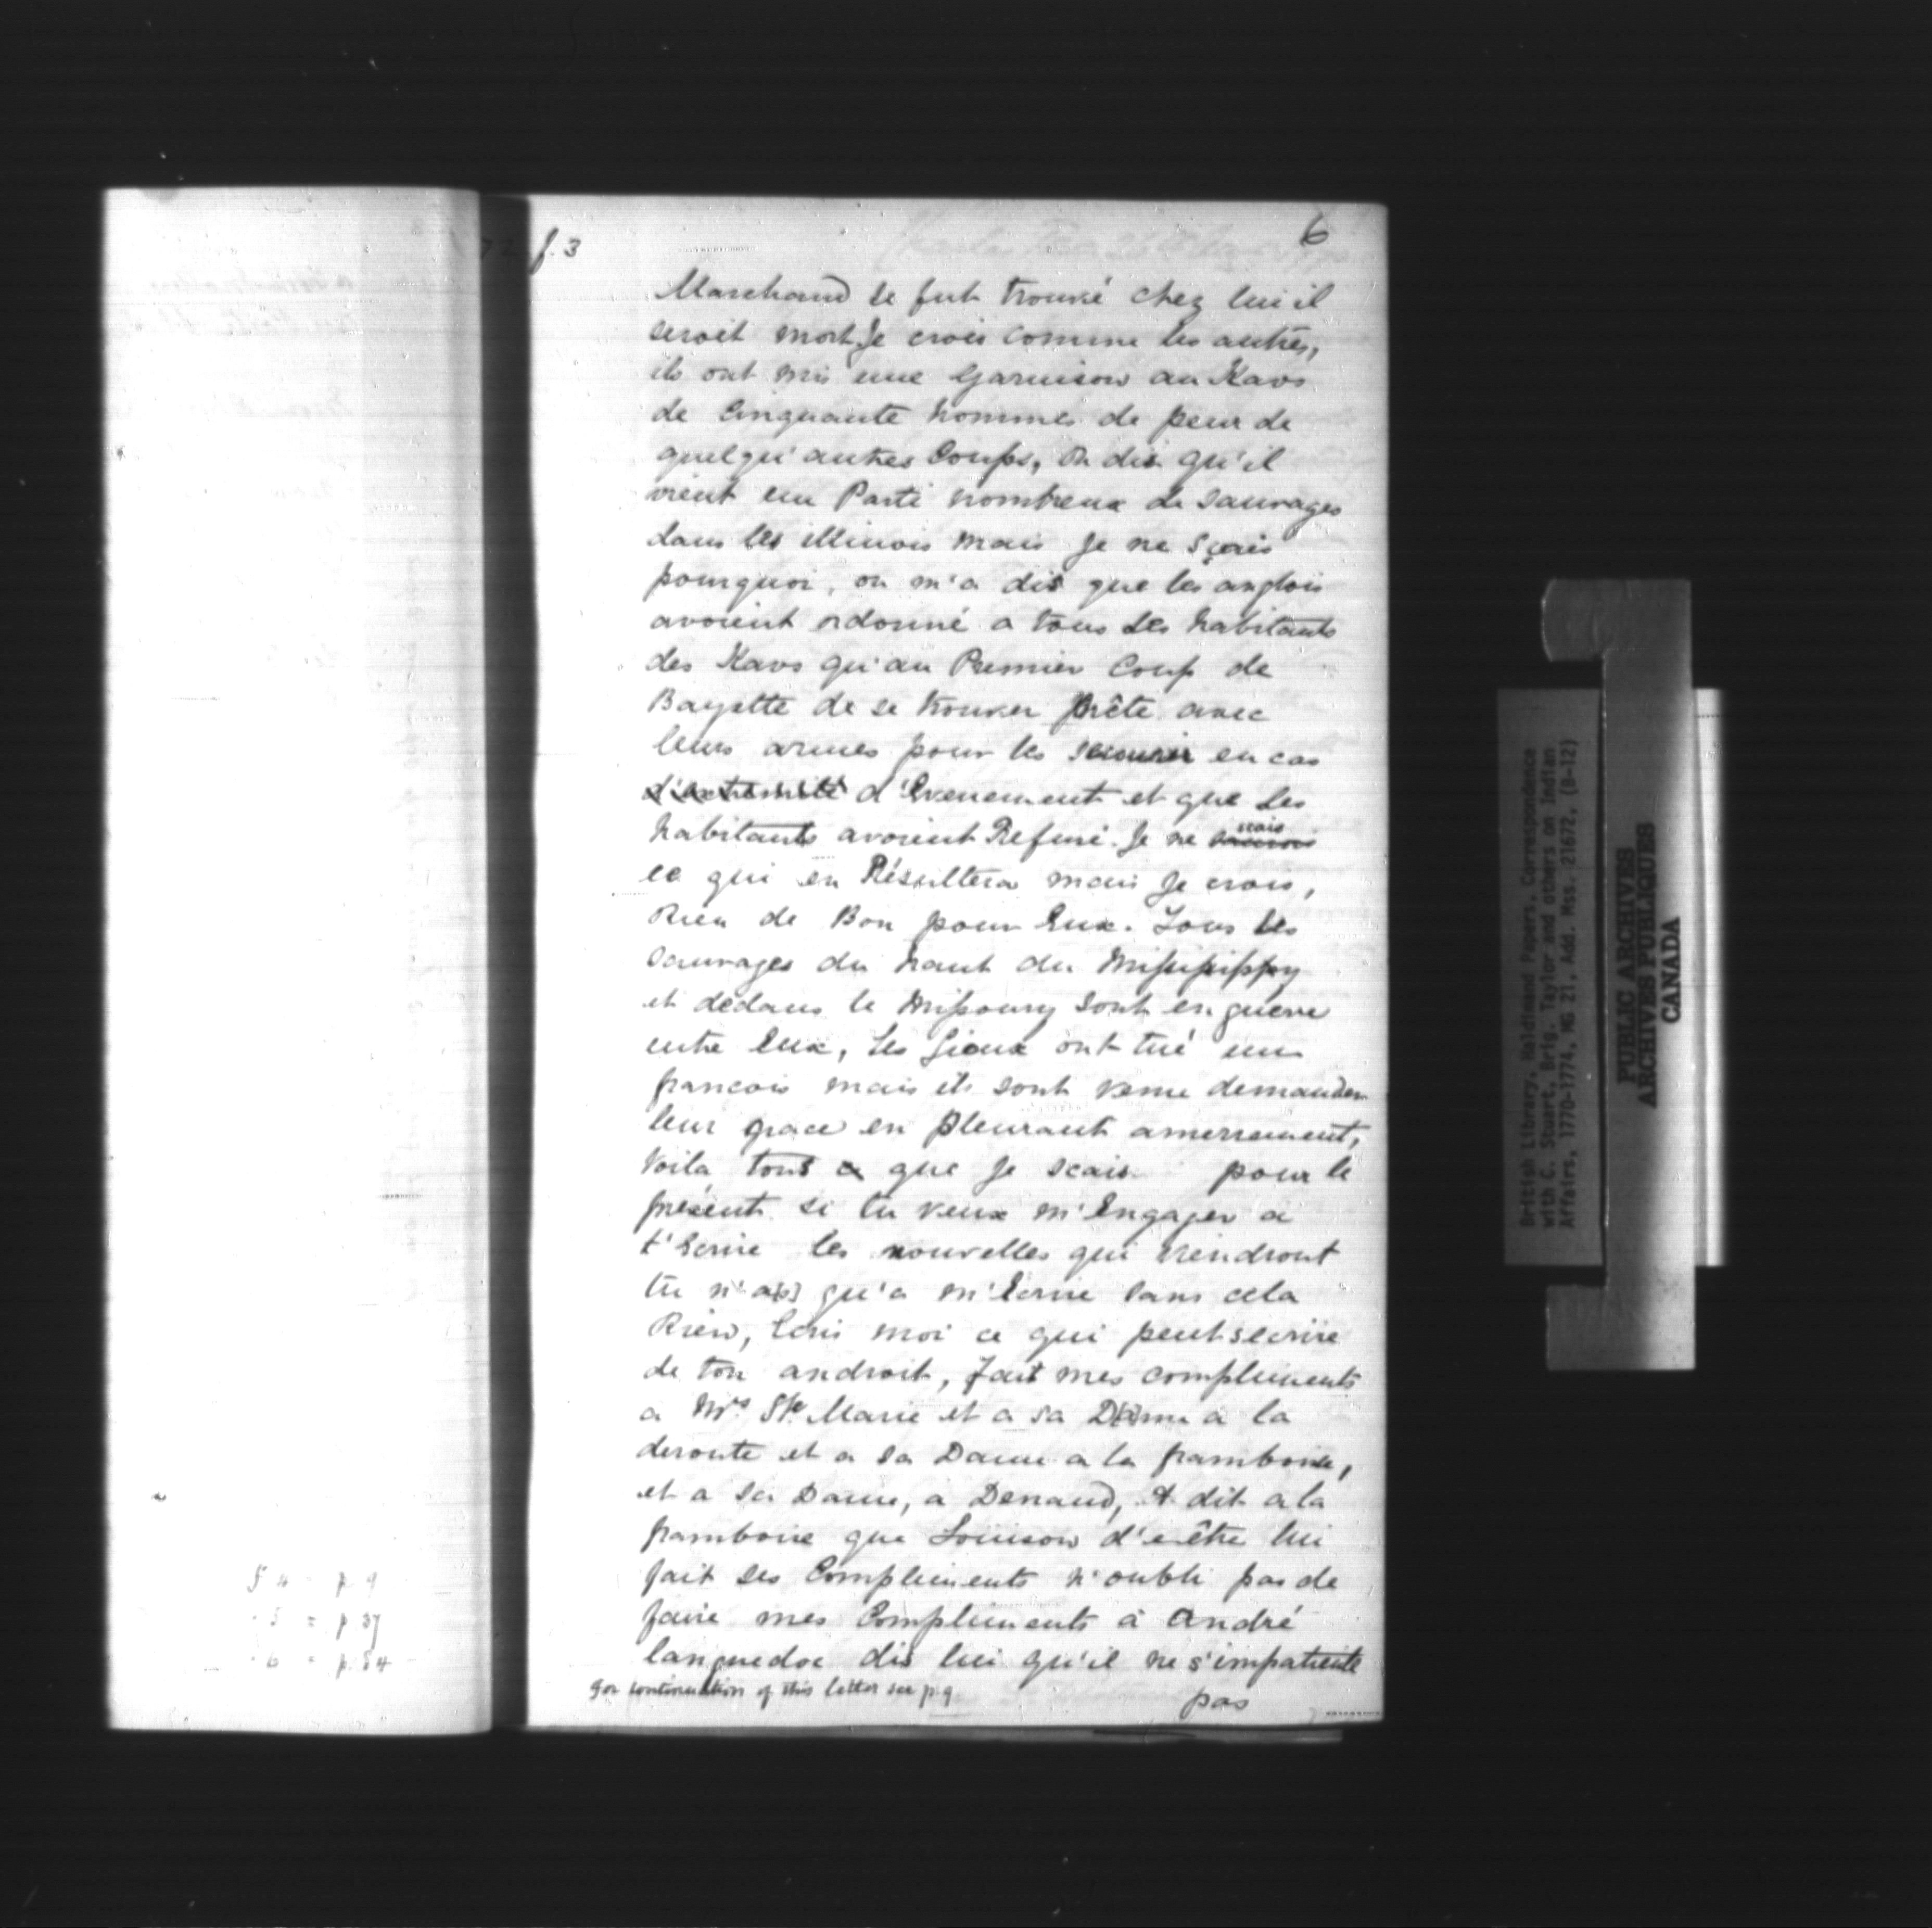 f. 3
6
Marchand se fut trouvé chez lui il
seroit mort Je crois comme les autres,
ils ont mis une Garnison au Kavs
de Cinquante hommes de peur de
quelqu'autres Coups, on dis qu'il
vient un Parti nombreux de Sauvages
dans les illinois mais Je ne Sçais
pourquoi, on m'a dis que les anglois
avoient ordonné a tous Les habitants
des Kavs qu'au Premier Coup de
Bayette de se trouver prête avec
leurs armes pour les secourir en cas
d'extremité d'Evenement et que Les
habitants avoient Refusé. Je ne scais
ce qui en Résultera mais Je crois,
Rien de Bon pour Eux. Tous les
Sauvages du haut du Missisippy
et dedans le Missoury Sont en guerre
entre Eux, Les Sioux ont tué un
francois mais ils sont venu demander
leur grace en pleurant amerrement,
Voila tout ce que Je scais pour le
présent si tu veux m'Engager a
t'Ecrire les nouvelles qui viendront
tu n'a[s] qu'a m'Ecrire Sans cela
Rien, Ecris moi ce qui peut secrire
de ton androit, fait mes compliments
a Mrs Ste Marie et a sa Dame a la
deroute et a sa Dame a la framboise,
et a sa Dame, a Denaud, et dit a la
framboise que Louison d'eêtre lui
fait Ses Compliments n'oubli pas de
faire mes Compliments à André
languedoc dis lui qu'il ne s'impatiente
pas
For continuation of this letter see p. 9
§ 4 = p 9
5 = p 37
6 = p. 84
British Library, Haldimand Papers. Correspondence
with C. Stuart, Brig. Taylor and others on Indian
Affairs, 1770-1774, MG 21, Add. Mss. 21672, (B-12)
PUBLIC ARCHIVES
ARCHIVES PUBLIQUES
CANADA